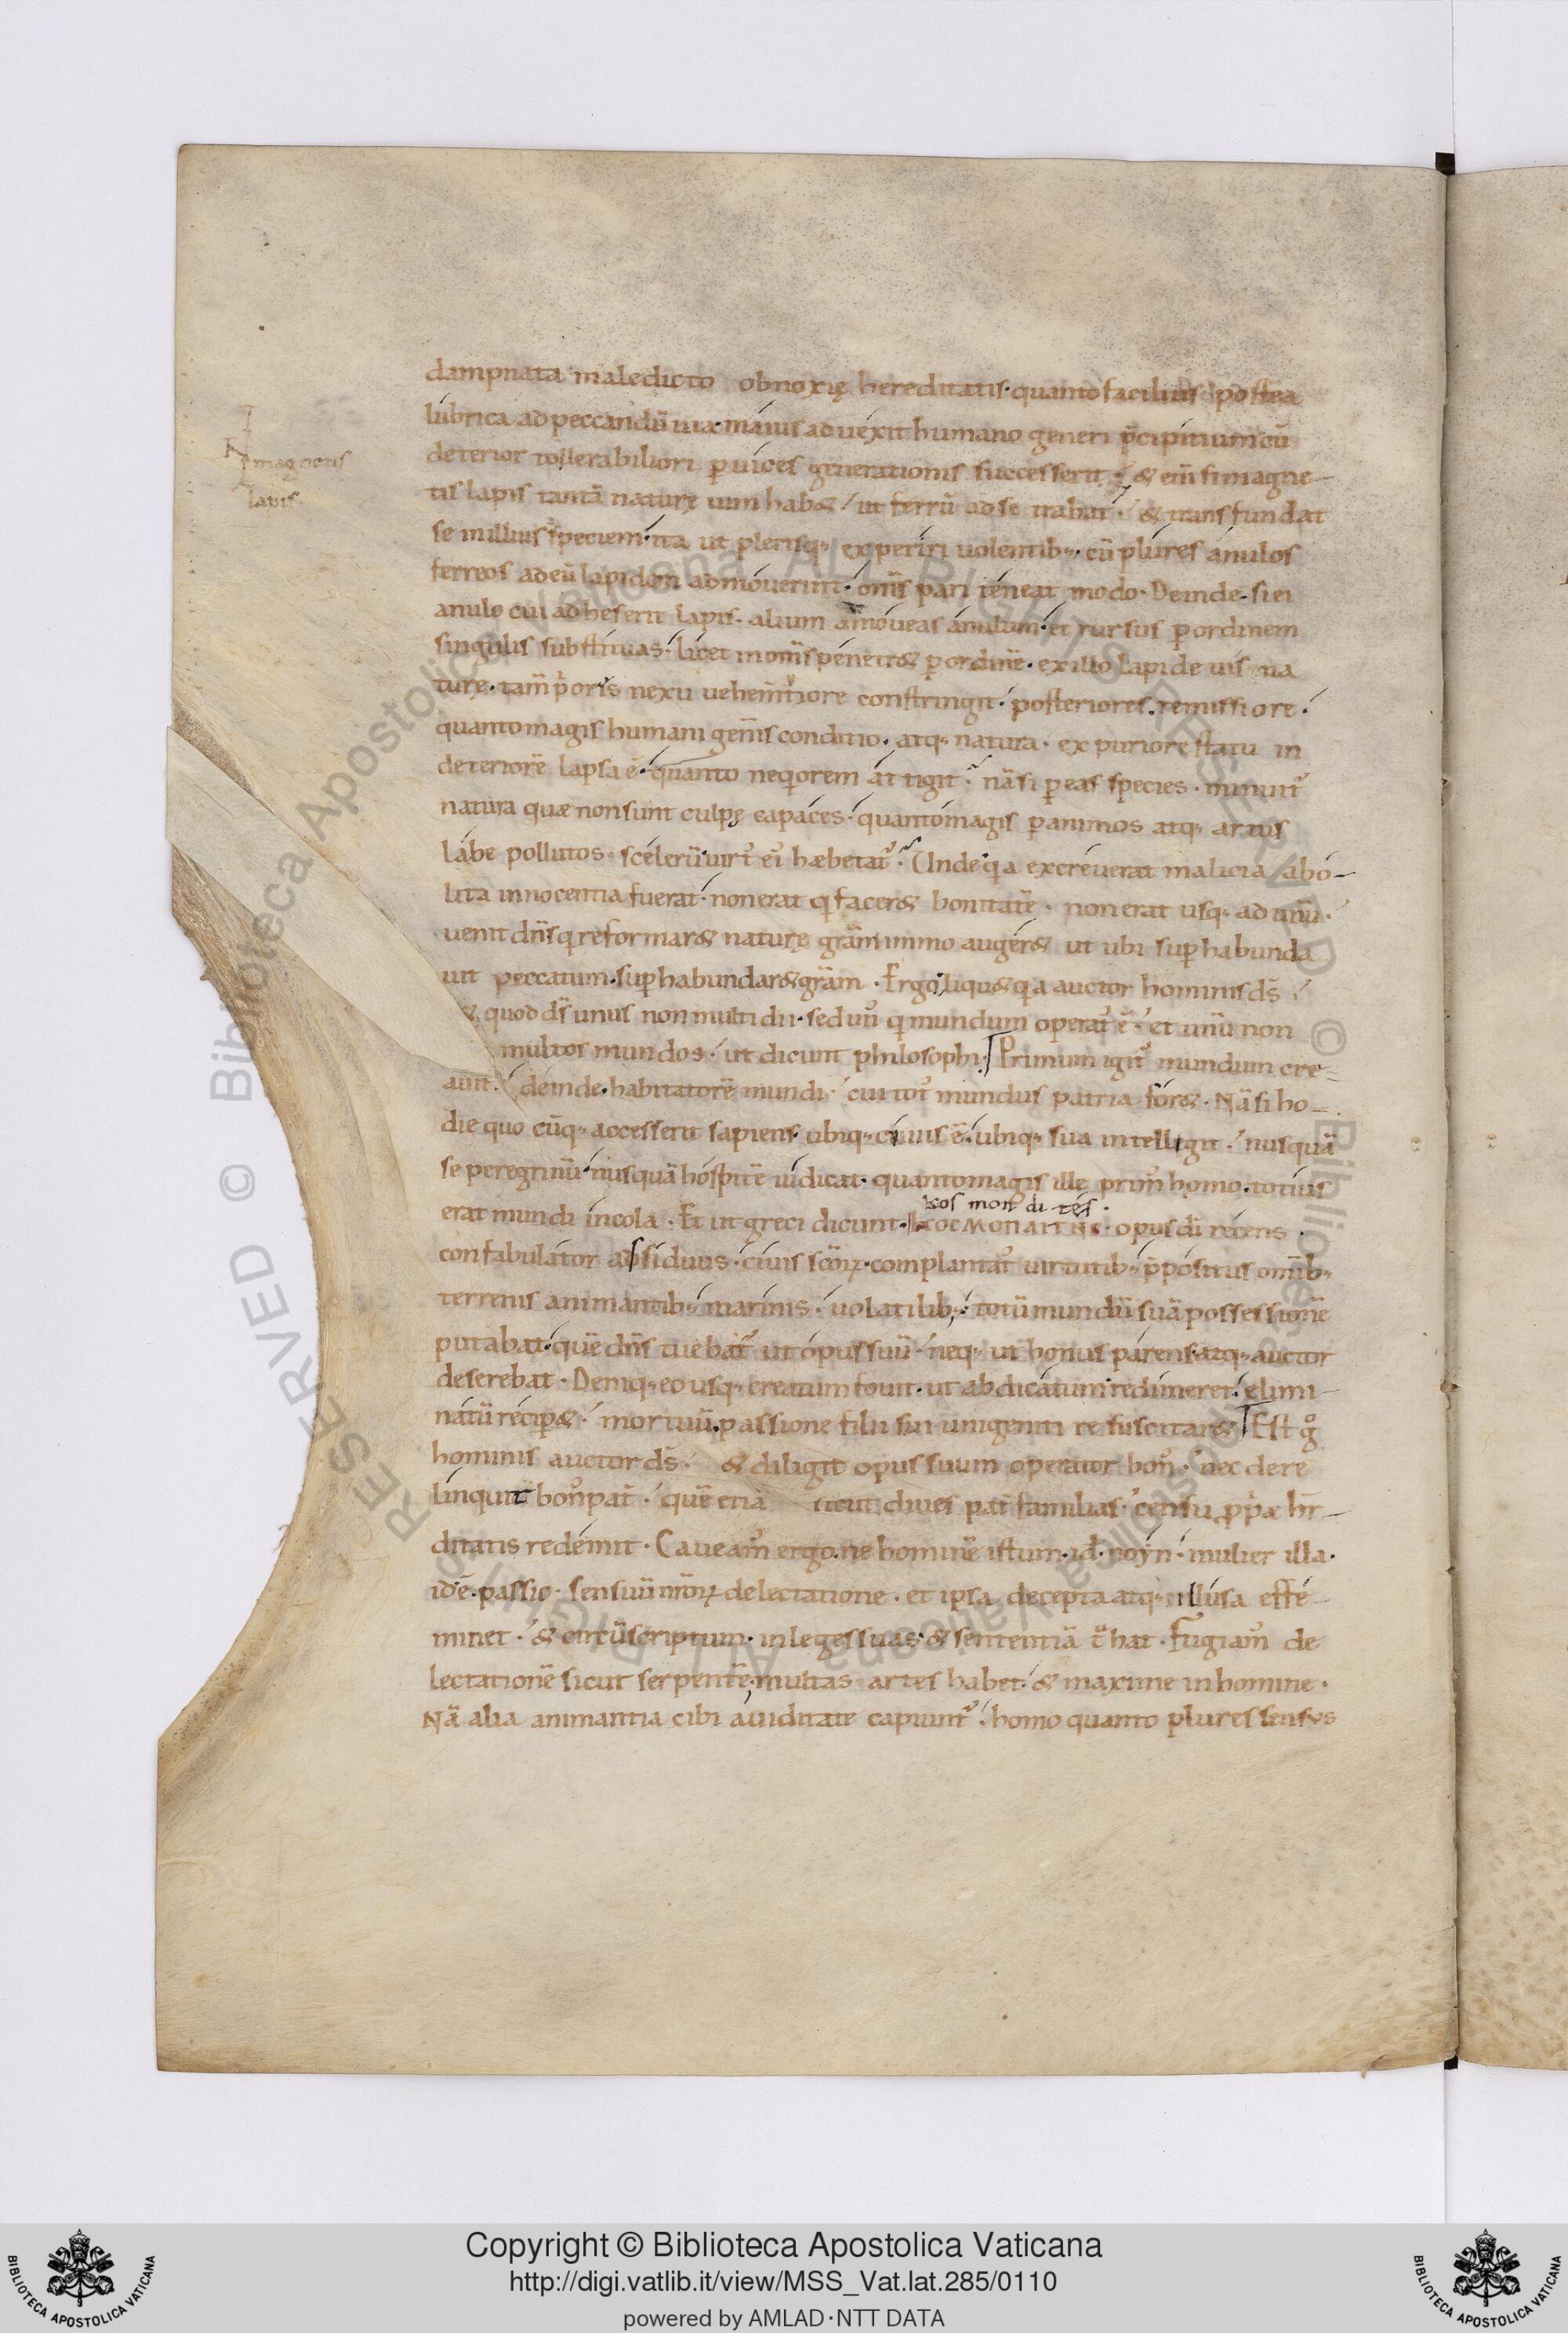 dampnata maledicto obnoxię hereditatis· quanto facilius postea
lubrica ad peccandū via· maius advexit humano generi p̄cipitium cū
deterior tollerabiliori ꝑ vices generationis successerit ·⁊ & eni͞m si magne-
magnetis
lapis
tis lapis tantā naturę vim hab& ut ferrū ad se trahat· & transfundat
se in illius speciem· ita ut plerisq· experiri volentib·· cū plures anulos
ferreos ad eū lapidem admoverint· om̄s pari teneat modo· Deinde· si ei
anulo cui adheserit lapis· alium amoveas anulum· et rursus ꝑ ordinem
singulis substituas· licet in om̄s penetr& ꝑ ordinē· ex illo lapide vis na
turę· tam̄ p̄oris nexu vehem̄tiore constringit· posteriores remissiore·
quanto magis humani gen̄is conditio· atq· natura· ex puriore statu in
deteriorē lapsa ē· quanto neqorem attigit· nā si ꝑ eas species· minuit᷒
natura quæ non sunt culpę capaces· quanto magis ꝑ animos atq· artus
labe pollutos· scelerū virt᷒ ei᷒ hæbetat᷒· Unde qa excreverat malicia abo-
lita innocentia fuerat· non erat q facer& bonitatē· non erat usq· ad unū·
venit dn̄s q reformar& naturę gr̄am immo auger& ut ubi suꝑhabunda
vit peccatum· suꝑhabundar& gr̄am· Ergo liqu& qa auctor hominis ds̄·
& quod ds̄ unus non multi dii· sed un᷒ q mundum operat᷒ ē· et unū non
multos mundos· ut dicunt philosophi· Primum igit᷒ mundum cre-
avit· deinde habitatorē mundi· cui tot᷒ mundus patria for&· Nā si ho-
die quo cūq· accesserit sapiens ubiq· civis ē· ubiq· sua intelligit· nusquā
se peregrinū nusquā hospitē iudicat· quanto magis ille prim᷒ homo· totius
kos mon di tes·
erat mundi incola· Et ut greci dicunt· KOCMONAITHC· opus dī recens·
confabulator assiduus· civis sc̄orꝝ· complantat᷒ virtutib·· p̄positus om̄ib·
terrenis animantib·· marinis· volatilib;· totū mundū suā possessionē
putabat· quē dn̄s tuebat᷒ ut opus suū· neq· ut bonus parens atq· auctor
deserebat· Deniq· eo usq· creatum fovit· ut abdicatum redimeret· elimi-
natū recip&· mortuū passione filii sui unigeniti resuscitar& Est g̊
hominis auctor ds̄· & diligit opus suum operator bon᷒· nec dere
linquit bon᷒ pat̄· quē etiā sicut dives pat̄ familias· censu ꝓp̄æ hr̄-
ditatis redemit· Caveam᷒ ergo ne hominē istum· id· noyn· mulier illa·
id ē· passio· sensuū nr̄orꝝ delectatione· et ipsa decepta atq· illusa effe-
minet· & circūscriptum· in leges suas & sententiā t̄hat· Fugiam᷒ de
lectationē sicut serpentē· multas artes habet· & maxime in homine·
Nā alia animantia cibi aviditate capiunt᷒· homo quanto plures sensus
Copyright © Biblioteca Apostolica Vaticana
http://digi.vatlib.it/view/MSS_Vat.lat.285/0110
powered by AMLAD·NTT DATA
BIBLIOTECA APOSTOLICA VATICANA
BIBLIOTECA APOSTOLICA VATICANA